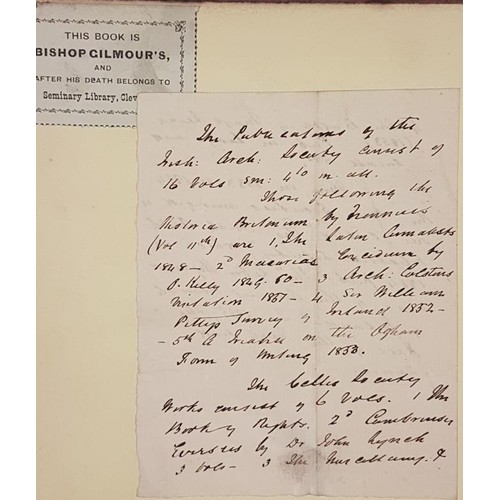 THIS BOOK IS
BISHOP GILMOUR'S,
AND
AFTER HIS DEATH BELONGS TO
Seminary Library, Clev
The Publications of the
Irish: Arch: Society consist of
16 Vols Sm: 4to in all.
Those following the
Historia Britonum by Nennius
(Vol 11th) are 1, The Latin Annalists
1848 - 2d Macariae Excidium by
O. Kelly 1849.50 - 3 Arch: Coltons
Visitation 1851 - 4 Sir William
Pettys Survey of Ireland 1852 -
- 5th A Treatise on the Ogham
Form of Writing 1853.
The Celtic Society
Works consist of 6 Vols. 1 The
Book of Rights. 2d Cambrensis
Eversus by Dr John Lynch
3 Vols - 3 The Miscellany &